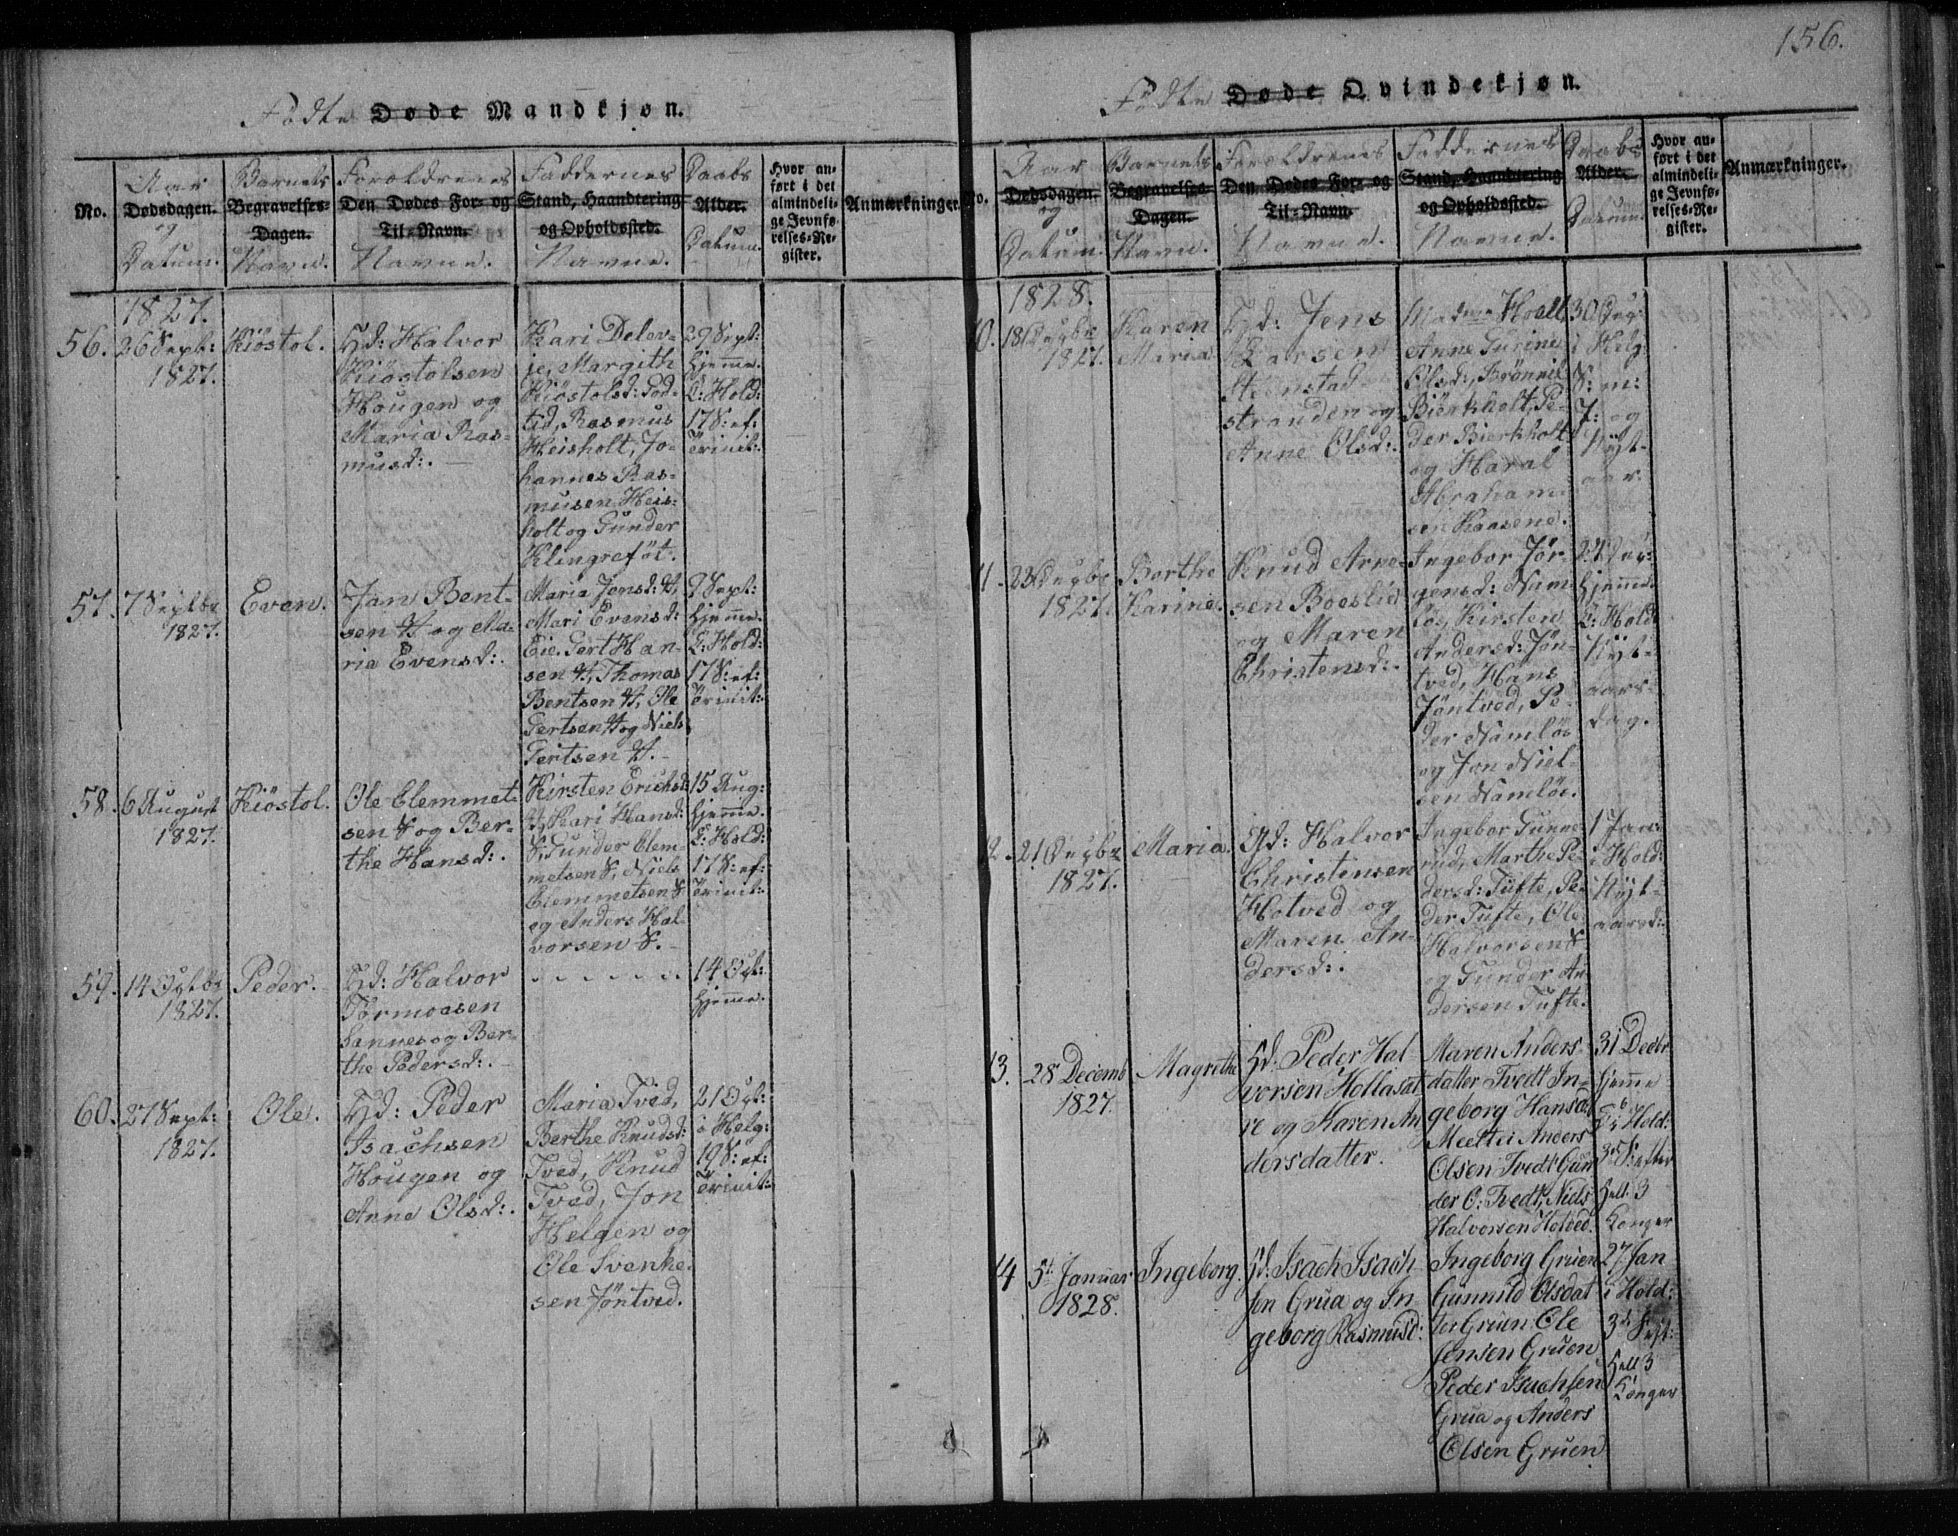 156.
Fødte Døde Mandkjøn.
No.
Aar
Dødsdagen.
og
Datum.
Barnets
Begravelses-
Dagen.
Navn.
Forældrenes
Den Dødes For- og
Til-Navn.
Navne.
Faddernes
Stand, Haandtering
og Opholdssted.
Navne.
Daabs
Alder.
Datum.
Hvor an-
ført i det
almindeli-
ge Jevnfø-
relses-Re-
gister.
Anmærkninger.
1827.
56.
26 Sept:
1827.
Kiöstol.
Hd: Halvor
Kiöstolsen
Hougen og
Maria Ras-
musd:.
Kari Delev-
ie, Margith
Kiöstolsd:
tid, Rasmus
Heisholt, Jo-
hannes Ras-
musen Heis-
holt og Gunder
Klingreföt.
29 Sept:
hjemme.
C: Hold:
17 S: ef:
Trinit:
57.
7 Septbr
1827.
Even.
Jan Bent-
sen og Ma-
ria Evensd:.
Maria Jensd:
Mari Evensd:
Eie, Gert Han-
sen, Thomas
Bentsen, Ole
Gertsen og Niels
Gertsen
9 Sept:
hjemme.
C: Hold:
17 S: ef:
Trinit:
58.
6 August
1827.
Kiöstol.
Ole Clemmet-
sen S og Ber-
the Hansd:.
Kirsten Erichsd:
Kari Hansd:
S, Gunder Clem-
metsen S, Niels
Clemmetsen S
og Anders Hal-
vorsen S.
15 Aug:
hjemme.
C: Hold:
17 S: ef:
Trinit:
59.
14 Octbr
1827.
Peder.
Hd: Halvor
Tormoesen
Sannes og Ber-
the Pedersd:.
14 Oct:
hjemme.
60.
27 Sept:
1827.
Ole.
Hd: Peder
Isachsen
Hougen og
Anne Olsd:.
Maria Tved,
Berthe Knudsd:
Tved, Knud
Tved, Jon
Helgen og
Ole Svenke-
sen Jöntved.
21 Oct:
i Helg:
19 S: ef:
Trinit:
Fødte Døde Qvindekjøn.
No.
Aar
Dødsdagen.
og
Datum.
Barnets
Begravelses-
Dagen.
Navn.
Forældrenes
Den Dødes For- og
Til-Navn.
Navne.
Faddernes
Stand, Haandtering
og Opholdssted.
Navne.
Daabs
Alder.
Datum.
Hvor an-
ført i det
almindeli-
ge Jevnfø-
relses-Re-
gister.
Anmærkninger.
1828.
10.
18 Decbr
1827.
Karen
Maria
Hd: Jens
Larsen
stranden og
Anne Olsd:.
Madme Holt
Anne Gurine
Olsd:, Grönnil
Bierkholt, Pe-
der Bierkholt
og Haral
Abraham-
sen Kaasene.
30 Dec:
i Helg:
S: m:
J: og
Nyt-
aar.
11.
22 Decbr
1827.
Berthe
Karine.
Knud Arne-
sen Boeslid
og Maren
Christensd:.
Ingebor Jör-
gensd: Nam-
lös, Kirsten
Andersd: Jön-
tved, Hans
Jöntved, Pe-
der Namlös
og Jon Niel-
sen Namlös.
hjemme.
C: Hold:
Nyt-
aars-
dag.
12.
21 Decbr
1827.
Maria.
Gd: Halvor
Christensen
Hotved og
Maren An-
dersd:.
Ingebor Gunne-
rud, Marthe Pe-
dersd: Tufte, Pe-
der Tufte, Ole
Halvorsen S
og Gunder An-
dersen Tufte.
1 Jan:
i Hold:
Nyt-
aarsd:
13.
28 Decemb
1827.
Magrethe
Hd. Peder Hal-
vorsen Hollasæt-
re og Karen An
dersdatter.
Maren Anders-
datter Tvedt In-
geborg Hansd:
Anders
Olsen Tvedt Gun
der O: Tvedt, Niels
Halvorsen Hotved.
31 Decbr
hjemme
i Hold:
3d S: efter
Hell. 3
Konger
14
5t Januar
1828.
Ingeborg.
Hd: Isach Isach-
sen Grua og In-
geborg Rasmusd:
Ingeborg Gruen
Gunnild Olsdat
ter Gruen Ole
Jensen Gruen
Peder Isachsen
Grua og Anders
Olsen Gruen
27 Jan
i Hold:
3d
Hell 3
Konger